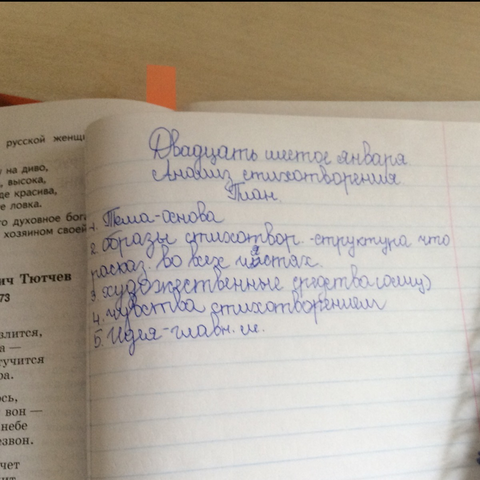 русской женщ
у на диво,
, высока,
де красива,
е ловка.
о духовное бог
хозяином своей
ич Тютчев
73
злится,
а —
тучится
ра.
ось,
вон —
небе
езвон.
чет
Двадцать шестое января
Анализ стихотворения
План.
1. Тема-основа
2. Образы стихотвор -структура что
расказ. во всех частях.
3 художественные средства(олиц)
4. чувства стихотворением
5. Идея-главн. м.